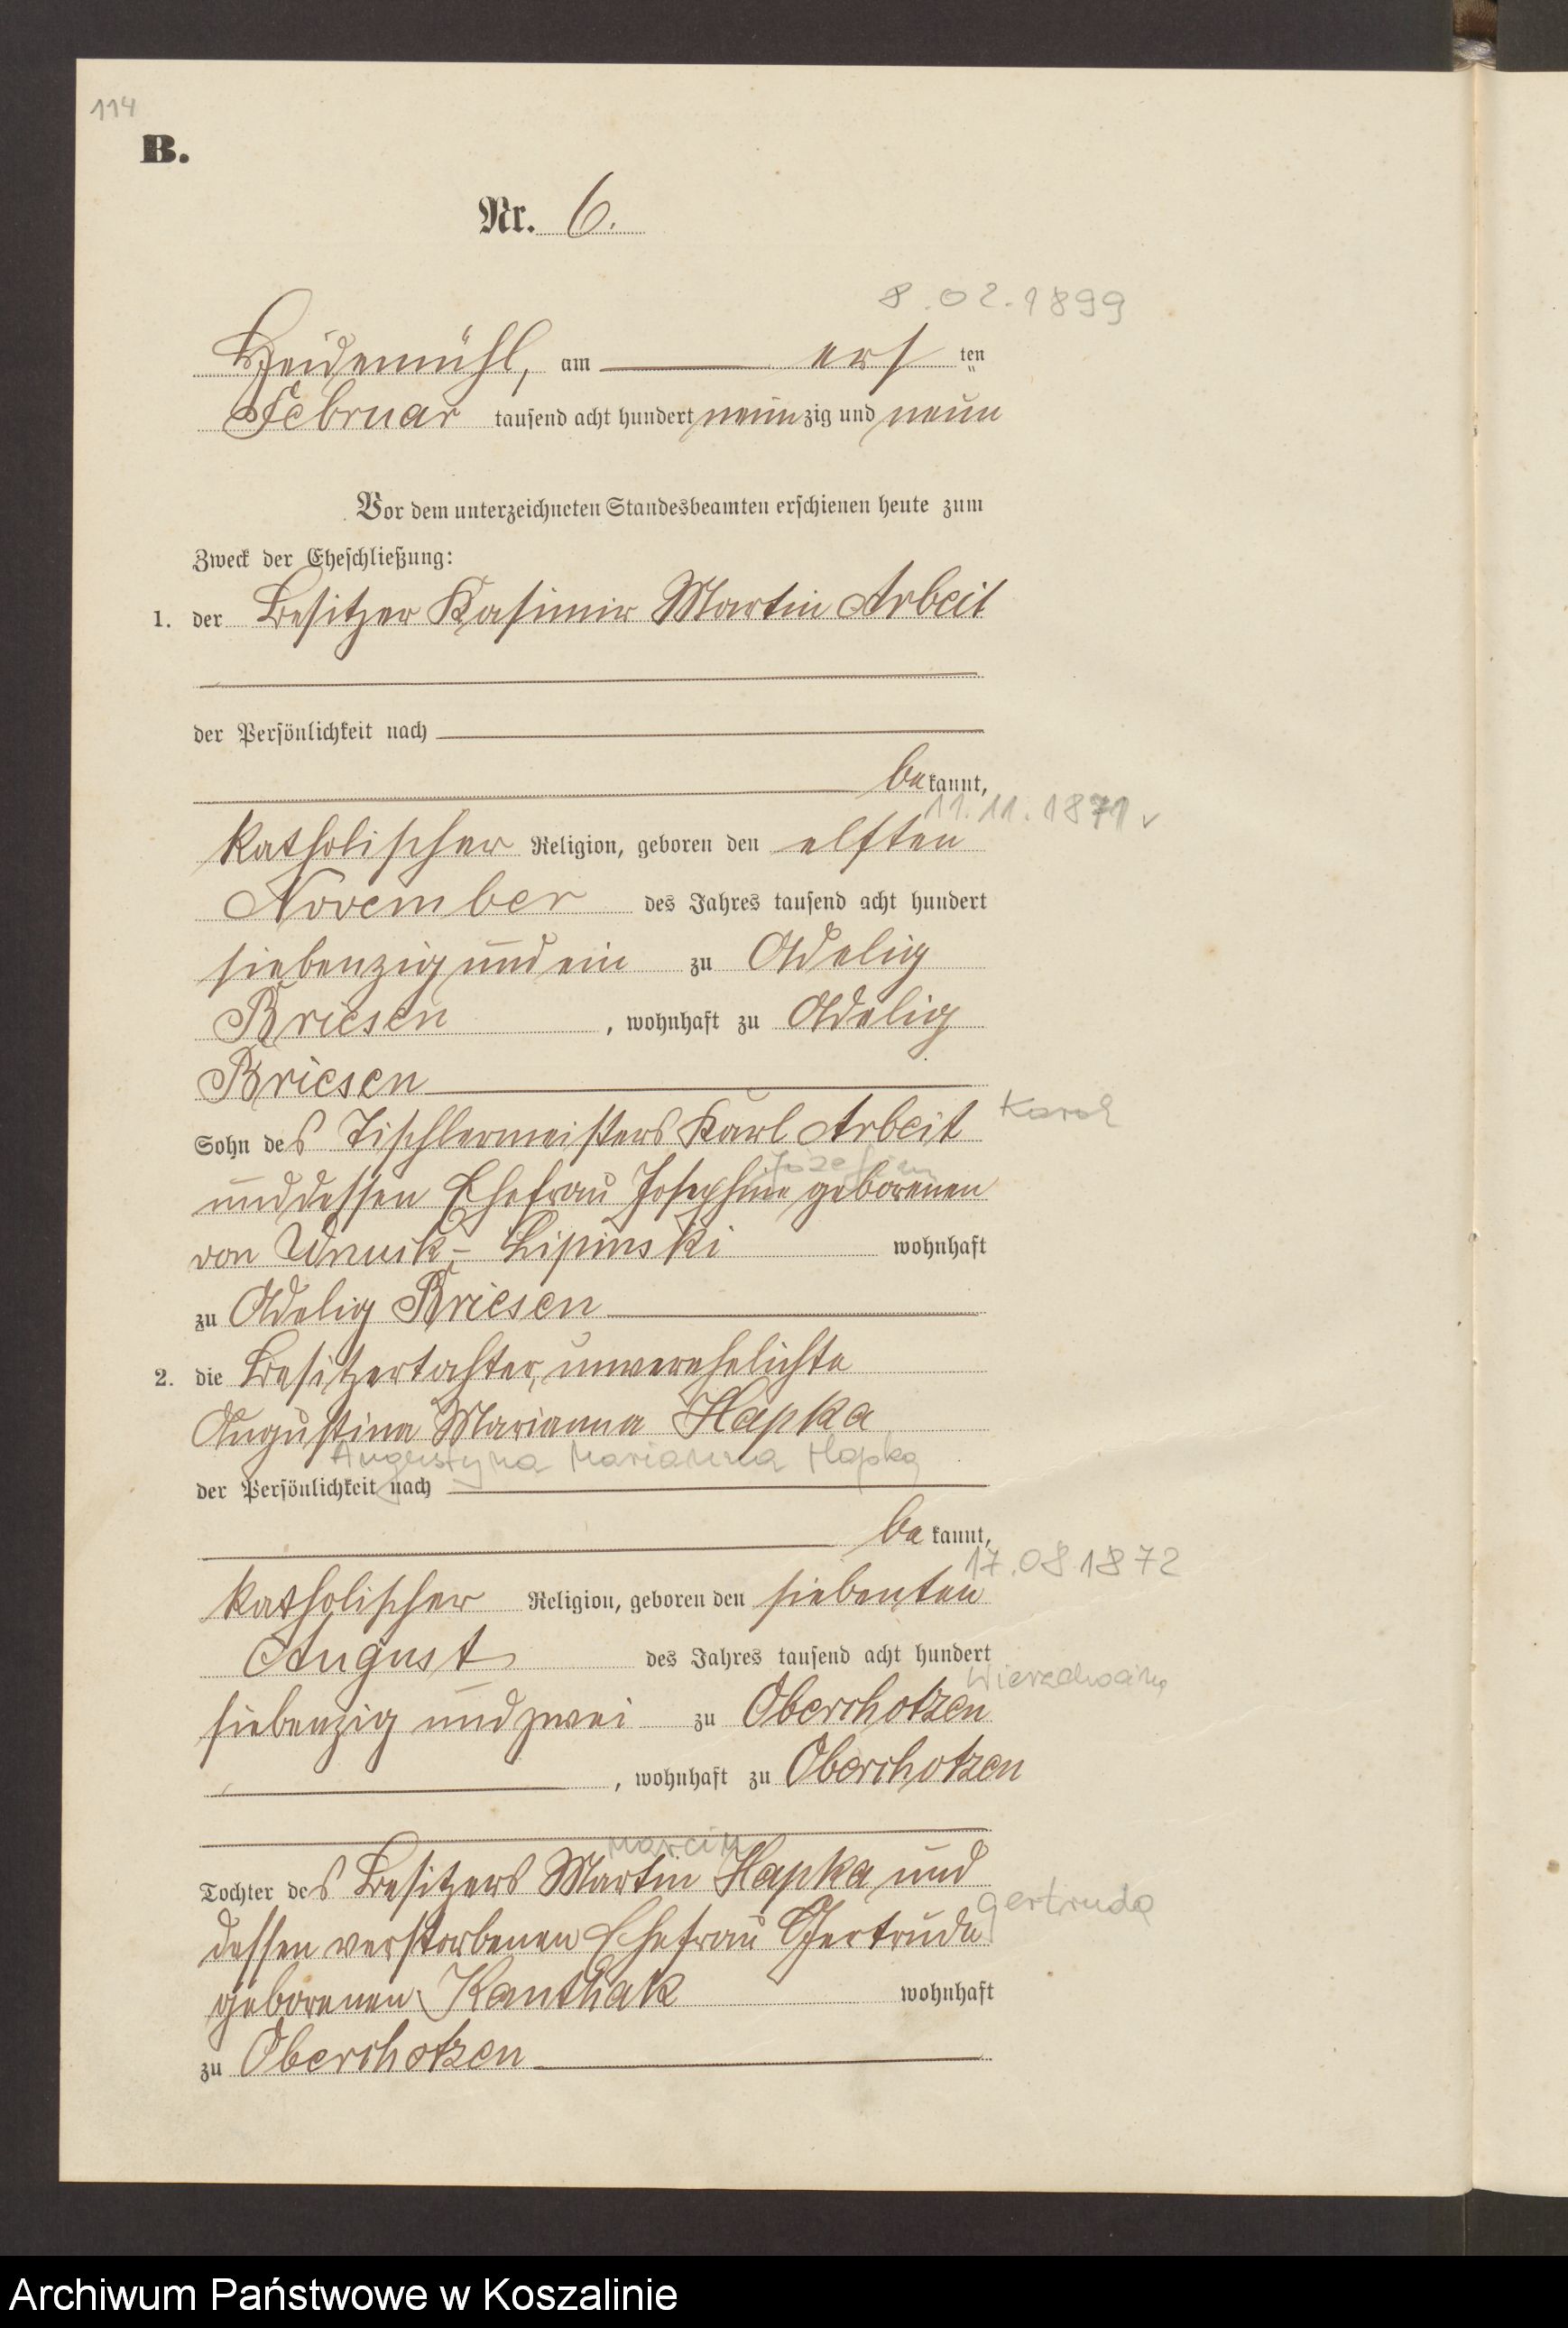 114
B.
Nr. 6.
8.02.1899
Heidemühl, am ersten
Februar tausend acht hundert neunzig und neun
Vor dem unterzeichneten Standesbeamten erschienen heute zum
Zweck der Eheschließung:
1. der Besitzer Kasimir Martin Arbeit
der Persönlichkeit nach
bekannt,
11.11.1871 ✓
katholischer Religion, geboren den elften
November des Jahres tausend acht hundert
siebenzig und ein zu Adelig
Briesen, wohnhaft zu Adelig
Briesen
Sohn des Tischlermeisters Karl Arbeit Karol
und dessen Ehefrau Josephine geborenen
von Wnuck-Lipinski wohnhaft
zu Adelig Briesen
2. die Besitzertochter, unverehelichte
Augustina Marianna Hapka
Augustyna Marianna Hapka
der Persönlichkeit nach
bekannt,
17.08.1872
katholischer Religion, geboren den siebenten
August des Jahres tausend acht hundert
siebenzig und zwei zu Oberchotzen
, wohnhaft zu Oberchotzen
Marcin
Tochter des Besitzers Martin Hapka und
Gertruda
dessen verstorbenen Ehefrau Gertrude
geborenen Kanthak wohnhaft
zu Oberchotzen
Archiwum Państwowe w Koszalinie